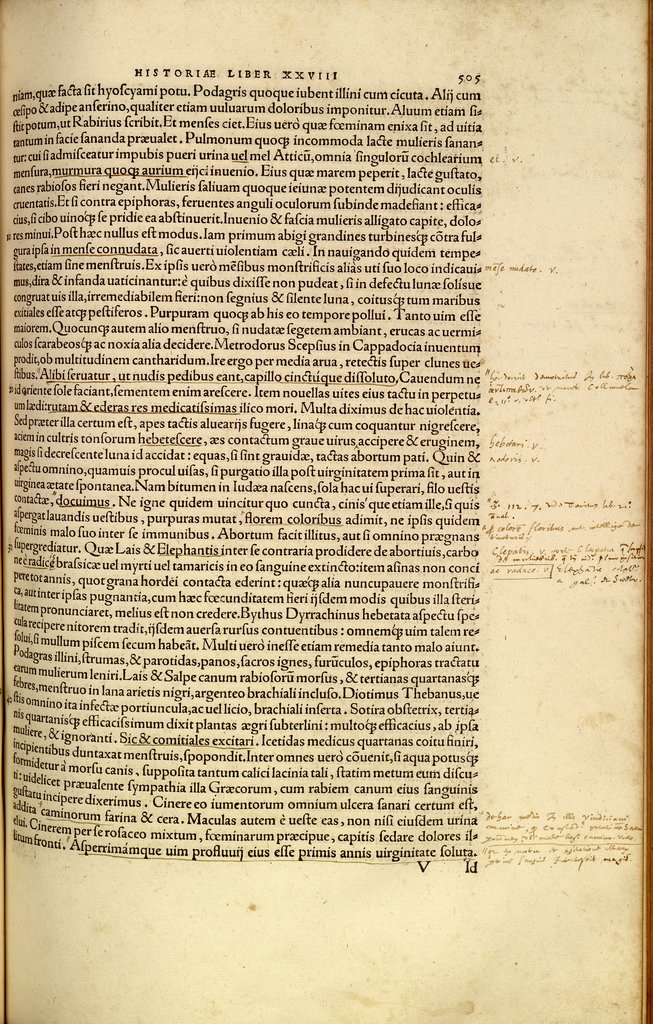 HISTORIAE LIBER XXVIII 505
niam, quæ facta sit hyoscyami potu. Podagris quoque iubent illini cum cicuta. Alij cum
cæsipo & adipe anserino, qualiter etiam uuluarum doloribus imponitur. Aluum etiam si⸗
stit potum, ut Rabirius scribit. Et menses ciet. Eius uerò quæ fœminam enixa sit, ad uitia
tantum in facie sananda præualet. Pulmonum quoqꝫ incommoda lacte mulieris sanan⸗
tur: cui si admisceatur impubis pueri urina uel mel Atticũ, omnia singulorũ cochlearium
mensura, murmura quoqꝫ aurium eijci inuenio. Eius quæ marem peperit, lacte gustato,
canes rabiosos fieri negant. Mulieris saliuam quoque ieiunæ potentem dijudicant oculis
cruentatis. Et si contra epiphoras, feruentes anguli oculorum subinde madefiant: effica⸗
cius, si cibo uinoqꝫ se pridie ea abstinuerit. Inuenio & fascia mulieris alligato capite, dolo⸗
res minui. Post hæc nullus est modus. Iam primum abigi grandines turbinesqꝫ cõtra ful⸗
gura ipsa in mense connudata, sic auerti uiolentiam cæli. In nauigando quidem tempe⸗
states, etiam sine menstruis. Ex ipsis uerò mẽsibus monstrificis aliàs uti suo loco indicaui⸗
mus, dira & infanda uaticinantur: è quibus dixisse non pudeat, si in defectu lunæ solisue
congruat uis illa, irremediabilem fieri: non segnius & silente luna, coitusqꝫ tum maribus
exitiales esse atqꝫ pestiferos. Purpuram quoqꝫ ab his eo tempore pollui. Tanto uim esse
maiorem. Quocunqꝫ autem alio menstruo, si nudatæ segetem ambiant, erucas ac uermi⸗
culos scarabeosqꝫ ac noxia alia decidere. Metrodorus Scepsius in Cappadocia inuentum
prodit, ob multitudinem cantharidum. Ire ergo per media arua, retectis super clunes ue⸗
stibus. Alibi seruatur, ut nudis pedibus eant, capillo cinctúque dissoluto, Cauendum ne
id oriente sole faciant, sementem enim arescere. Item nouellas uites eius tactu in perpetu⸗
um lædi: rutam & ederas res medicatissimas ilico mori. Multa diximus de hac uiolentia.
Sed præter illa certum est, apes tactis aluearijs fugere, linaqꝫ cum coquantur nigrescere,
aciem in cultris tonsorum hebetescere, æs contactum graue uirus accipere & eruginem,
magis si decrescente luna id accidat: equas, si sint grauidæ, tactas abortum pati. Quin &
aspectu omnino, quamuis procul uisas, si purgatio illa post uirginitatem prima sit, aut in
uirgine ætate spontanea. Nam bitumen in Iudæa nascens, sola hac ui superari, filo uestis
contactæ, docuimus. Ne igne quidem uincitur quo cuncta, cinisque etiam ille, si quis
aspergat lauandis uestibus, purpuras mutat, florem coloribus adimit, ne ipsis quidem
fœminis malo suo inter se immunibus. Abortum facit illitus, aut si omnino prægnans
supergrediatur. Quæ Lais & Elephantis inter se contraria prodidere de abortiuis, carbo
ne è radice brassicæ uel myrti uel tamaricis in eo sanguine extincto: item asinas non conci
pere tot annis, quot grana hordei contacta ederint: quæqꝫ alia nuncupauere monstrifi⸗
ca, aut inter ipsas pugnantia, cum hæc fœcunditatem fieri ijsdem modis quibus illa steri⸗
litatem pronunciaret, melius est non credere. Bythus Dyrrachinus hebetata aspectu spe⸗
cula recipere nitorem tradit, ijsdem auersa rursus contuentibus: omnemqꝫ uim talem re⸗
solui, si mullum piscem secum habeãt. Multi uerò inesse etiam remedia tanto malo aiunt.
Podagras illini, strumas, & parotidas, panos, sacros ignes, furũculos, epiphoras tractatu
earum mulierum leniri. Lais & Salpe canum rabiosorũ morsus, & tertianas quartanasqꝫ
febres, menstruo in lana arietis nigri, argenteo brachiali incluso. Diotimus Thebanus, ue
stis omnino ita infectæ portiuncula, ac uel licio, brachiali inserta. Sotira obstetrix, tertia⸗
nis quartanisqꝫ efficacissimum dixit plantas ægri subterlini: multoqꝫ efficacius, ab ipsa
muliere, & ignoranti. Sic & comitiales excitari. Icetidas medicus quartanas coitu finiri,
incipientibus duntaxat menstruis, spopondit. Inter omnes uerò cõuenit, si aqua potusqꝫ
formidetur à morsu canis, supposita tantum calici lacinia tali, statim metum eum discu⸗
ti: uidelicet præualente sympathia illa Græcorum, cum rabiem canum eius sanguinis
gustatu incipere dixerimus. Cinere eo iumentorum omnium ulcera sanari certum est,
addita caminorum farina & cera. Maculas autem è ueste eas, non nisi eiusdem urina
elui. Cinerem per se rosaceo mixtum, fœminarum præcipue, capitis sedare dolores il⸗
litum fronti. Asperrimámque uim profluuij eius esse primis annis uirginitate soluta.
V Id
et. v.
mẽse nudato. v.
hebetari. v.